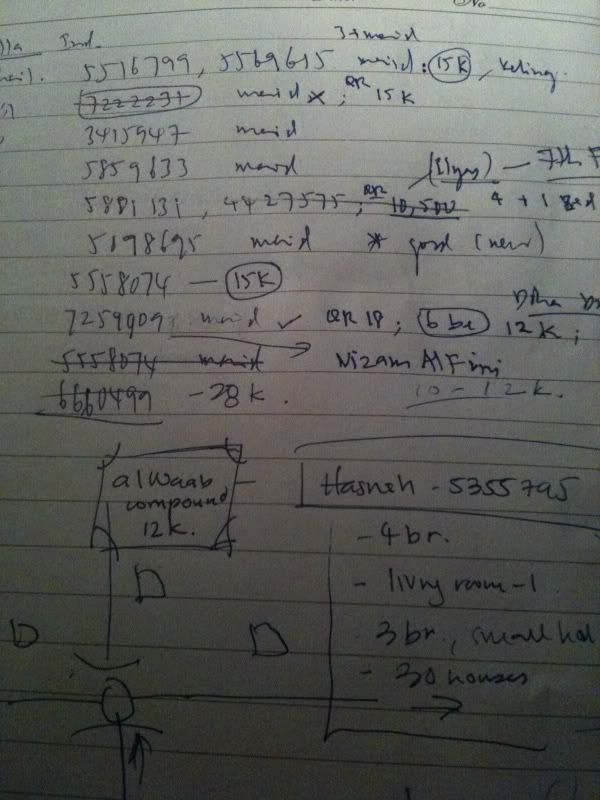 No
3+maid
5516799, 5569615 maid : 15K,
7222237 maid x ; QR 15K
3415947 maid
5859633 maid
5881131, 4427575; QR 10,500 4 + 1 Bed
(Ilyas) — 7th F
5198695 maid * good (new)
5558074 — 15K
7259909 maid ✓ QR 18 ; 6 br 12K;
5558074 maid Nizam Al
6660499 - 28K. 10-12K.
al Waab
compound
12K.
Hasneh - 5355795
- 4br.
- living room-1
3br., small hal
- 30 houses